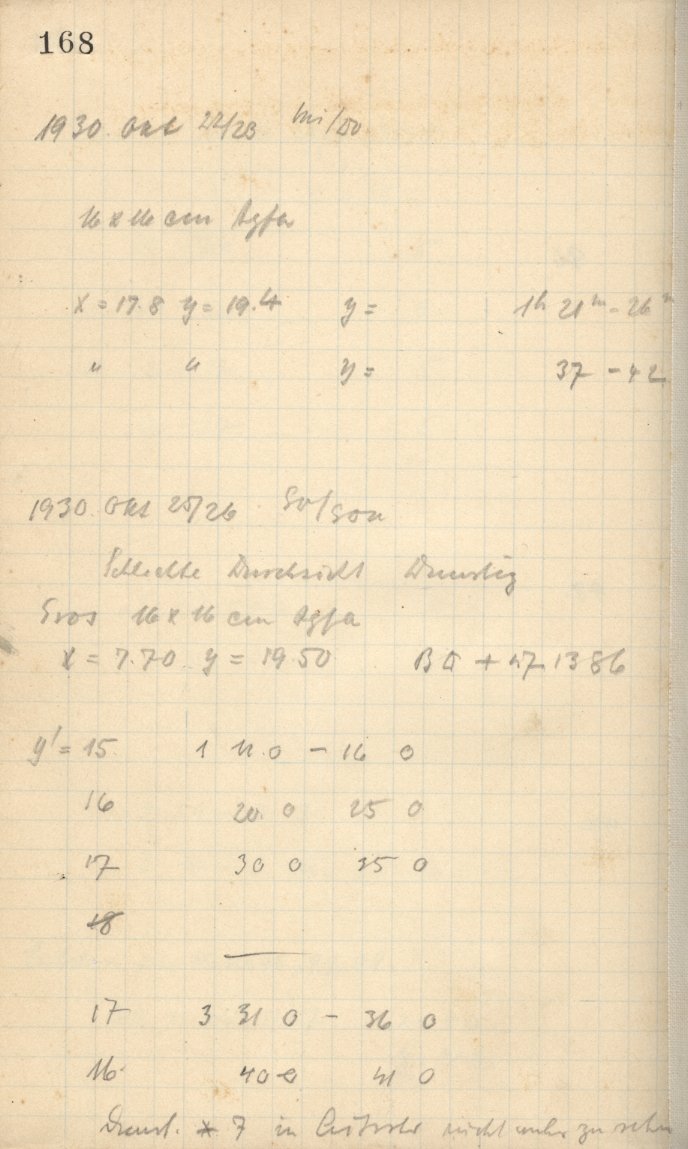 168
1930 Okt 22/23 Mi/Do
16 x 16 cm Agfa
x = 17.8 y = 19.4 y = 1h 21m - 26m
" " y = 37 - 42
1930 Okt 25/26 So/Son
Schlechte Durchsicht Dunstig
Eros 16 x 16 cm Agfa
x = 7.70 y = 19 50 BD + 47 1386
y' = 15 1 11.0 - 16 0
16 20. 0 25 0
17 30 0 35 0
18
17 3 31 0 - 36 0
16. 40 0 41 0
Dunst. * 7 in nicht mehr zu sehen